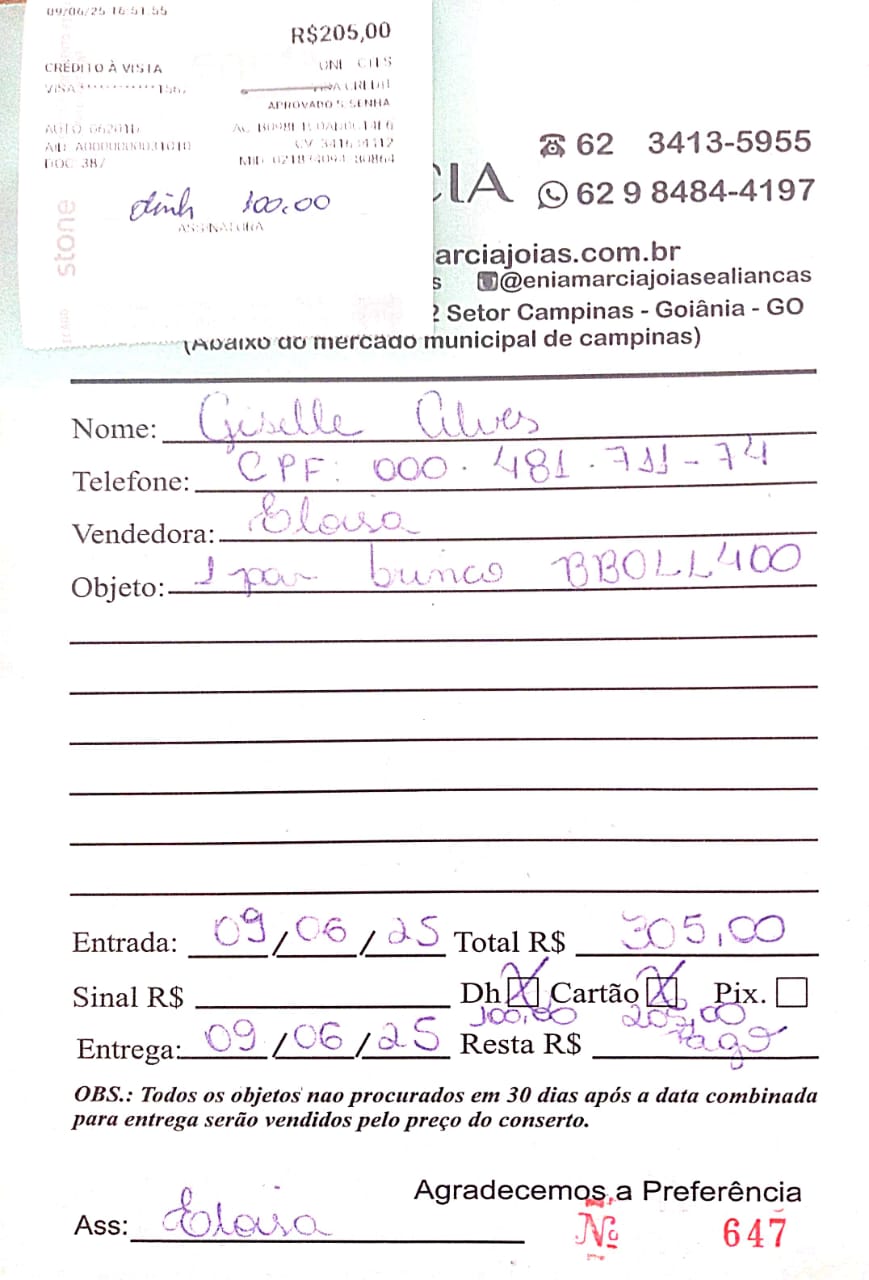 09/06/25 16:51:55
R$205,00
CRÉDITO À VISTA
APROVADO S SENHA
DOC 387
dinh 100,00
ASSINATURA
stone
CIA
62 3413-5955
62 9 8484-4197
arciajoias.com.br
s @eniamarciajoiasealiancas
2 Setor Campinas - Goiânia - GO
(Abaixo do mercado municipal de campinas)
Nome: Giselle Alves
Telefone: CPF: 000.481.711-74
Vendedora: Eloisa
Objeto: 1 par brinco BBOLL400
Entrada: 09/06/25 Total R$ 305,00
Sinal R$ Dh X Cartão X Pix.
100,00 205,00
Entrega: 09/06/25 Resta R$ Pago
OBS.: Todos os objetos nao procurados em 30 dias após a data combinada
para entrega serão vendidos pelo preço do conserto.
Agradecemos a Preferência
Ass: Eloisa
Nº 647